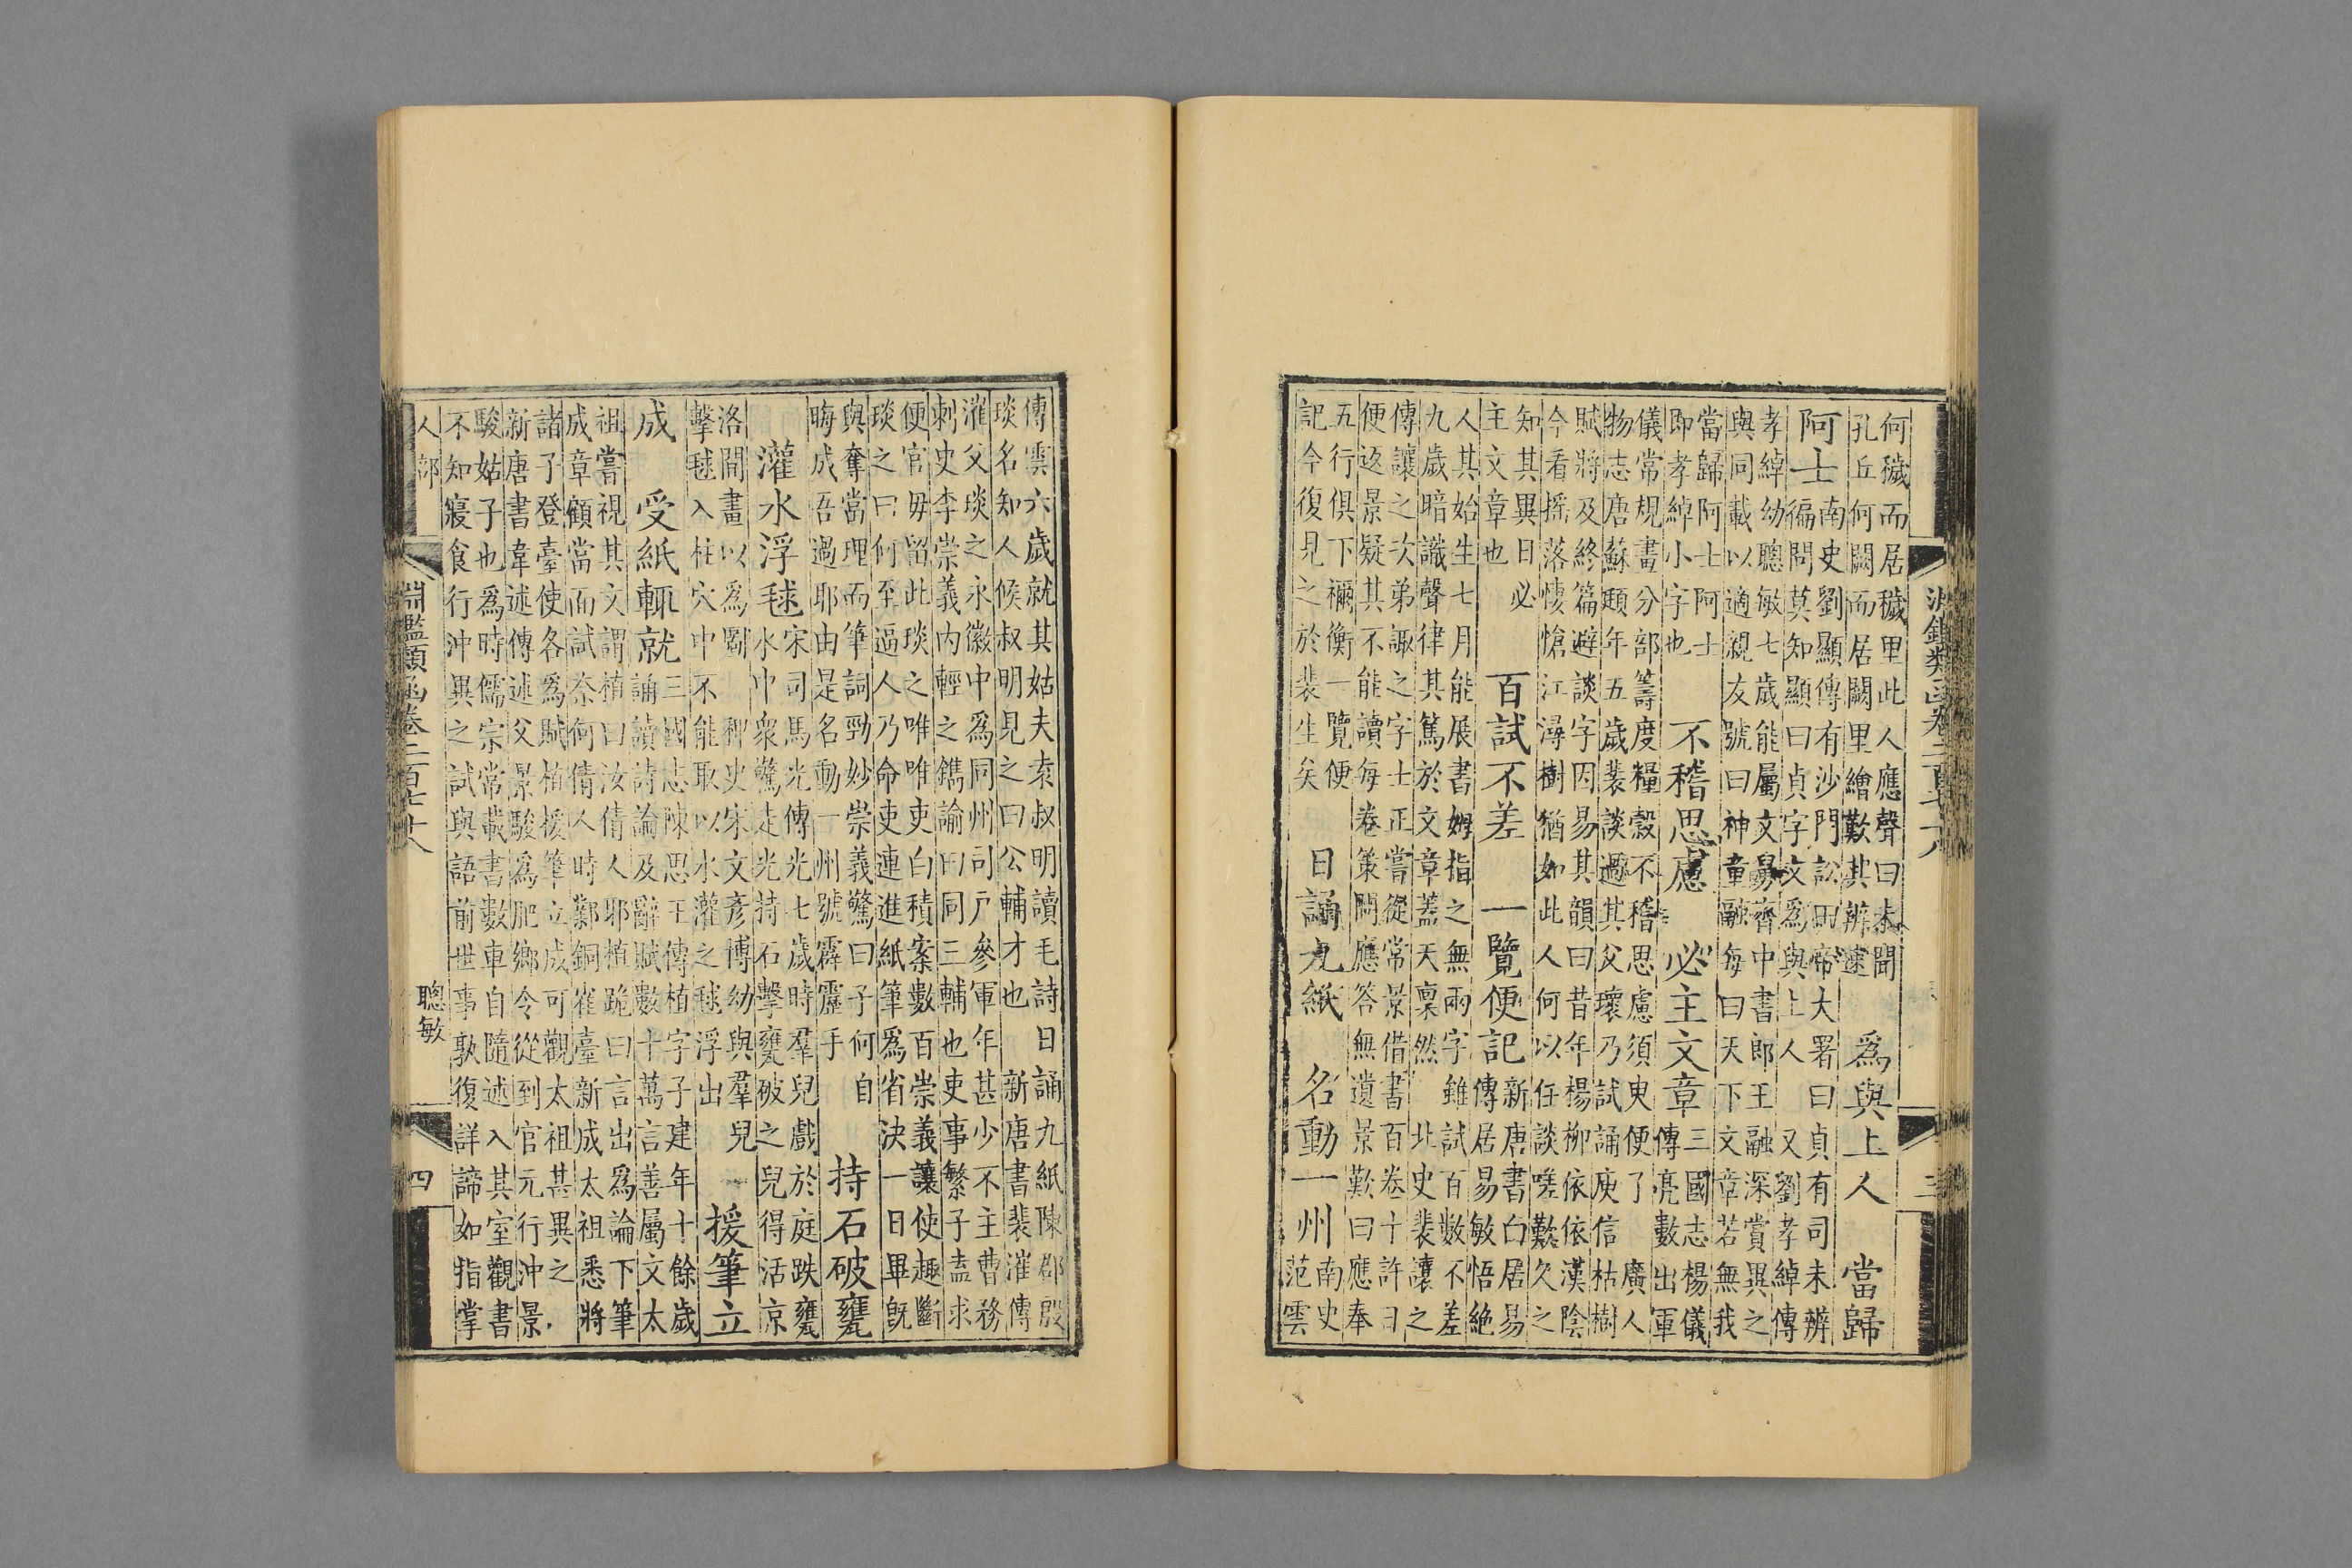 何穢而居穢里此人應聲曰未聞
孔丘何闕而居闕里繪歎其辨速
為與上人　當歸
阿士
南史劉顯傳有沙門訟田帝大署曰貞有司未辨
徧問莫知顯曰貞字文為與上人　又劉孝綽傳
孝綽幼聰敏七歲能屬文舅齊中書郎王融深賞異之
與同載以適親友號曰神童融每曰天下文章若無我
當歸阿士阿士
即孝綽小字也
不稽思慮　必主文章
三國志楊儀
傳亮數出軍
儀常規畫分部籌度糧穀不稽思慮須臾便了　廣人
物志唐蘇頲年五歲裴談過其父瓌乃試誦庾信枯樹
賦將及終篇避談字因易其韻曰昔年楊柳依依漢陰
今看搖落悽愴江潯樹猶如此人何以任談嗟歎久之
知其異日必
主文章也
百試不差　一覽便記
新唐書白居易
傳居易敏悟絕
人其始生七月能展書姆指之無兩字雖試百數不差
九歲暗識聲律其篤於文章蓋天稟然　北史裴讓之
傳讓之次弟諏之字士正嘗從常景借書百卷十許日
便返景疑其不能讀每卷策問應答無遺景歎曰應奉
五行俱下禰衡一覽便
記今復見之於裴生矣
日誦九紙　名動一州
南史
范雲
傳雲六歲就其姑夫袁叔明讀毛詩日誦九紙陳郡殷
琰名知人候叔明見之曰公輔才也　新唐書裴漼傳
漼父琰之永徽中為同州司戶參軍年甚少不主曹務
刺史李崇義內輕之鐫諭曰同三輔也吏事繁子盍求
便官毋留此琰之唯唯吏白積案數百崇義讓使趣斷
琰之曰何至逼人乃命吏連進紙筆為省決一日畢既
與奪當理而筆詞勁妙崇義驚曰子何自
晦成吾過耶由是名動一州號霹靂手
持石破甕
灌水浮毬
宋司馬光傳光七歲時羣兒戲於庭跌甕
水中眾驚走光持石擊甕破之兒得活京
洛間畫以為圖　稗史宋文彥博幼與羣兒
擊毬入柱穴中不能取以水灌之毬浮出
援筆立
成　受紙輒就
三國志陳思王傳植字子建年十餘歲
誦讀詩論及辭賦數十萬言善屬文太
祖嘗視其文謂植曰汝倩人耶植跪曰言出為論下筆
成章顧當面試奈何倩人時鄴銅雀臺新成太祖悉將
諸子登臺使各為賦植援筆立成可觀太祖甚異之
新唐書韋述傳述父景駿為肥鄉令從到官元行沖景
駿姑子也為時儒宗常載書數車自隨述入其室觀書
不知寢食行沖異之試與語前世事孰復詳諦如指掌
人部
聰敏
四